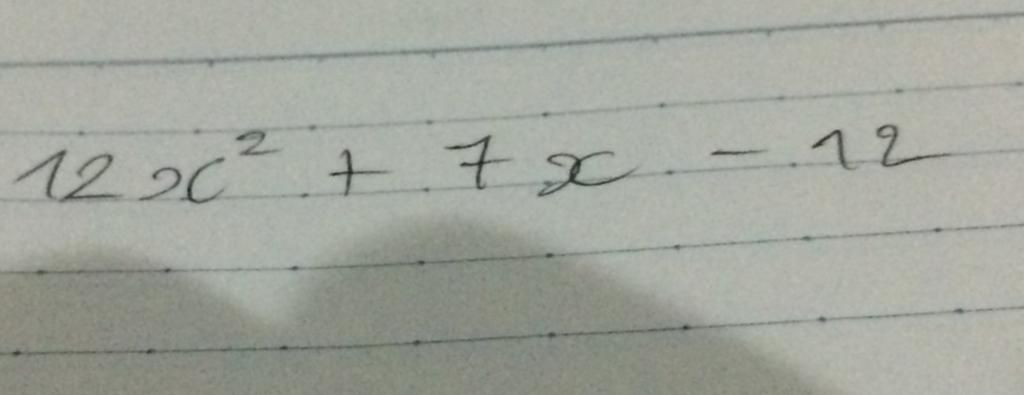 12x² + 7x - 12